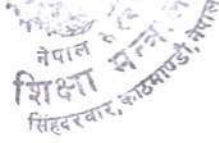 नेपाल
शिक्षा मन्त्रा
सिंहदरवार, काठमाण्डौ, नेपाल